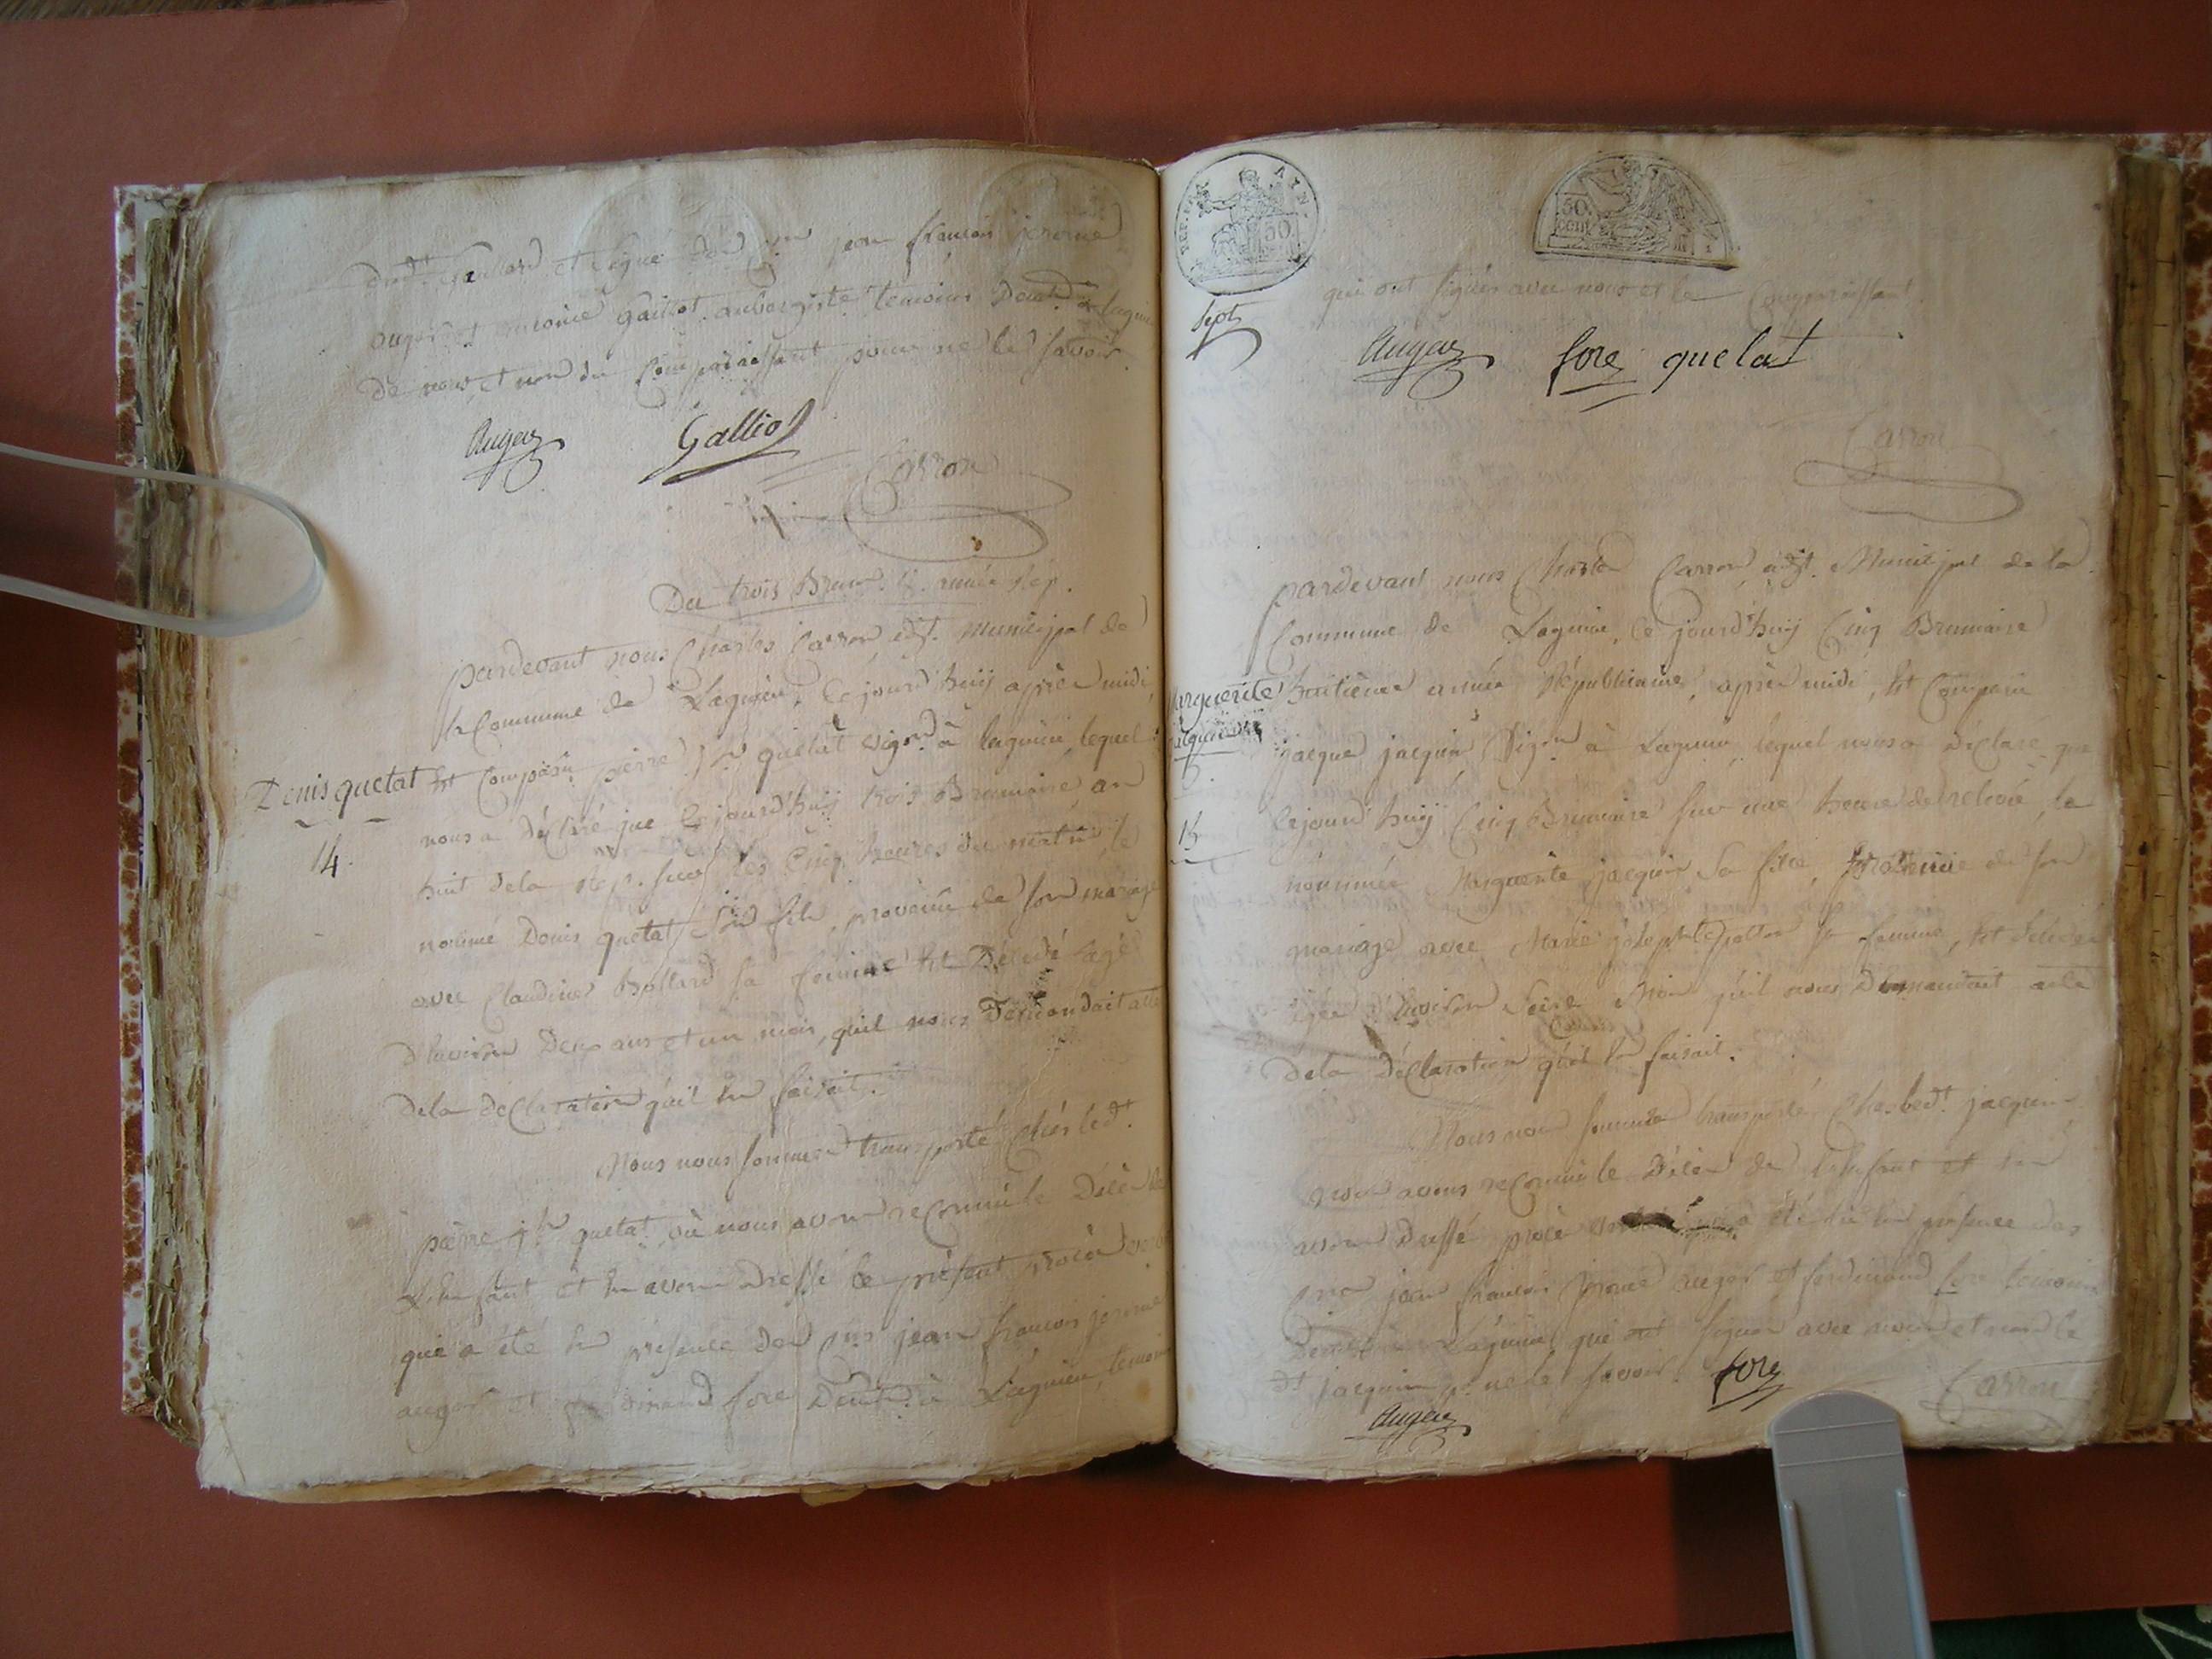 et signé des jean francois jerome
auger et gailliot aubergiste temoins à lagnieu
de nous, et non du Comparaissant pour ne le savoir
Auger Galliot
Carron
Du trois Brum. 8. année rep.
pardevant nous Charles Carron, agt. Municipal de
la Commune de Lagnieu, Cejourd'huij après midi,
Denis quetat
Est Comparu pierre jh quetat vigon à lagnieu, lequel
nous a Déclaré que Cejourd'huij trois Brumaire an
14.
huit dela rep. sur les Cinq heures du matin, le
nommé Denis quetat son fils, provenu de son mariage
avec Claudine Bollard sa femme est Décédé agé
d'Environ Deux ans et un mois, qu'il nous Demandait acte
dela declaration qu'il En faisait.
Nous nous sommes transporté chés led.t
pierre jh quetat où nous avons reConnu le Décès de
L'Enfant et En avons Dressé le présent procès verbal
qui a été En présence des jean francois jerome
auger et ferdinand fore à Lagnieu, temoins
REP. FRA. AIN. 50.
50. cent.
sept
qui ont signés avec nous et le Comparaissant
Auger fore quelat
Carron
pardevant nous Charles Carron agt. Municipal de la
Commune de Lagnieu, Ce jourd'huij Cinq Brumaire
Marguerite
huitième année Républicaine, après midi, Est Comparu
jacquin
jacque jacquin Vigon à Lagnieu, lequel nous a Déclaré que
15
Cejourd'huij Cinq Brumaire sur une heure de relevée, la
nommée Marguerite jacquin sa fille, provenue de son
mariage avec Marie josephte sa femme, Est Décédée
agée d'Environ Seize Mois qu'il nous Demandait acte
dela Déclaration qu'il En faisait.
Nous nous sommes transporté Chés led.t jacquin
nous avons reConnu le Décès de L'Enfant et En
avons Dressé procès a été En présence des
jean francois jerome auger et ferdinand fore temoins
à Lagnieu qui ont signés avec nous et non le
dt jacquin pr. ne le savoir. fore
Carron
Auger